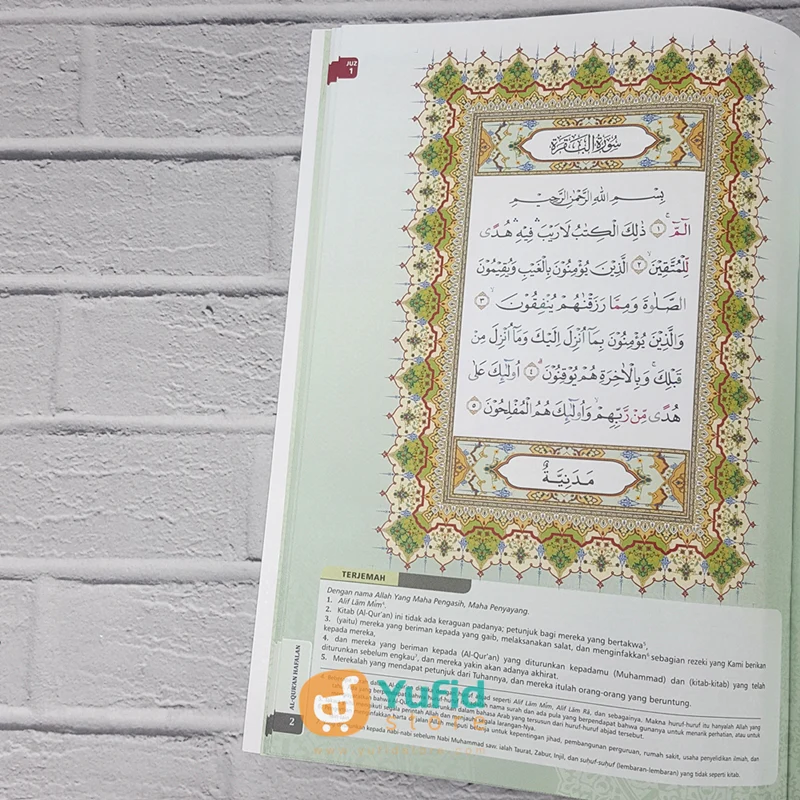 JUZ
1
سُوْرَةُ الْبَقَرَةِ
بِسْمِ اللّٰهِ الرَّحْمٰنِ الرَّحِيْمِ
الۤمّۤ ۚ ١ ذٰلِكَ الْكِتٰبُ لَا رَيْبَ ۛ فِيْهِ ۛ هُدًى
لِّلْمُتَّقِيْنَ ۙ ٢ الَّذِيْنَ يُؤْمِنُوْنَ بِالْغَيْبِ وَيُقِيْمُوْنَ
الصَّلٰوةَ وَمِمَّا رَزَقْنٰهُمْ يُنْفِقُوْنَ ۙ ٣
وَالَّذِيْنَ يُؤْمِنُوْنَ بِمَآ اُنْزِلَ اِلَيْكَ وَمَآ اُنْزِلَ مِنْ
قَبْلِكَ ۚ وَبِالْاٰخِرَةِ هُمْ يُوْقِنُوْنَ ۗ ٤ اُولٰۤىِٕكَ عَلٰى
هُدًى مِّنْ رَّبِّهِمْ ۙ وَاُولٰۤىِٕكَ هُمُ الْمُفْلِحُوْنَ ٥
مَدَنِيَّةٌ
TERJEMAH
Dengan nama Allah Yang Maha Pengasih, Maha Penyayang.
1. Alif Lām Mīm⁴.
2. Kitab (Al-Qur'an) ini tidak ada keraguan padanya; petunjuk bagi mereka yang bertakwa⁵,
3. (yaitu) mereka yang beriman kepada yang gaib, melaksanakan salat, dan menginfakkan⁶ sebagian rezeki yang Kami berikan
kepada mereka,
4. dan mereka yang beriman kepada (Al-Qur'an) yang diturunkan kepadamu (Muhammad) dan (kitab-kitab) yang telah
diturunkan sebelum engkau⁷, dan mereka yakin akan adanya akhirat.
5. Merekalah yang mendapat petunjuk dari Tuhannya, dan mereka itulah orang-orang yang beruntung.
seperti Alif Lām Mīm, Alif Lām Rā, dan sebagainya. Makna huruf-huruf itu hanyalah Allah yang
nama surah dan ada pula yang berpendapat bahwa gunanya untuk menarik perhatian, atau untuk
diturunkan dalam bahasa Arab yang tersusun dari huruf-huruf abjad tersebut.
perintah Allah dan menjauhi segala larangan-Nya.
harta di jalan Allah meliputi belanja untuk kepentingan jihad, pembangunan perguruan, rumah sakit, usaha penyelidikan ilmiah, dan
kepada nabi-nabi sebelum Nabi Muhammad saw. ialah Taurat, Zabur, Injil, dan suhuf-suhuf (lembaran-lembaran) yang tidak seperti kitab.
AL-QUR'AN HAFALAN
2
Yufid
STORE